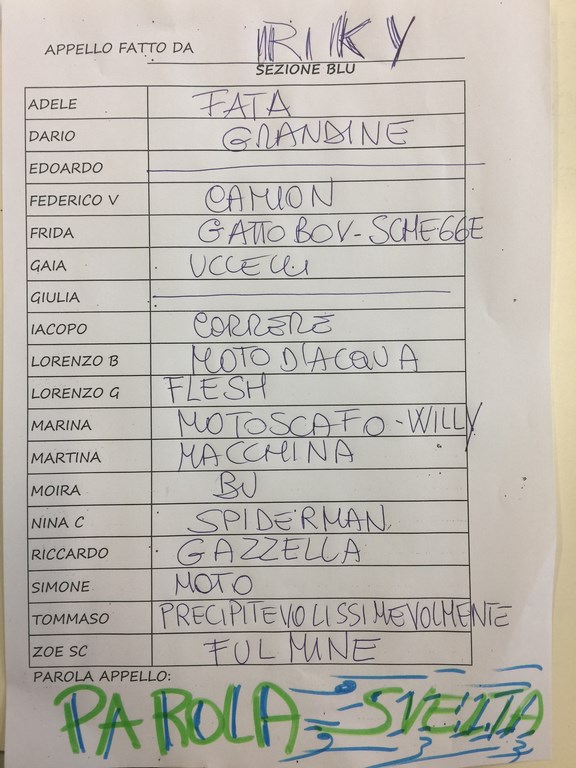 APPELLO FATTO DA RIKY
SEZIONE BLU
ADELE FATA
DARIO GRANDINE
EDOARDO
FEDERICO V CAMION
FRIDA GATTO BOY-SCHEGGE
GAIA UCCELLI
GIULIA
IACOPO CORRERE
LORENZO B MOTO D'ACQUA
LORENZO G FLESH
MARINA MOTOSCAFO-WILLY
MARTINA MACCHINA
MOIRA BU
NINA C SPIDERMAN
RICCARDO GAZZELLA
SIMONE MOTO
TOMMASO PRECIPITEVOLISSIMEVOLMENTE
ZOE SC FULMINE
PAROLA APPELLO:
PAROLA SVELTA